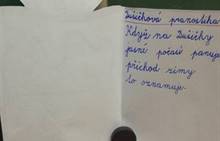 Dušičková pranostika
Když na Dušičky
jasné počasí panuje
příchod zimy
to oznamuje.